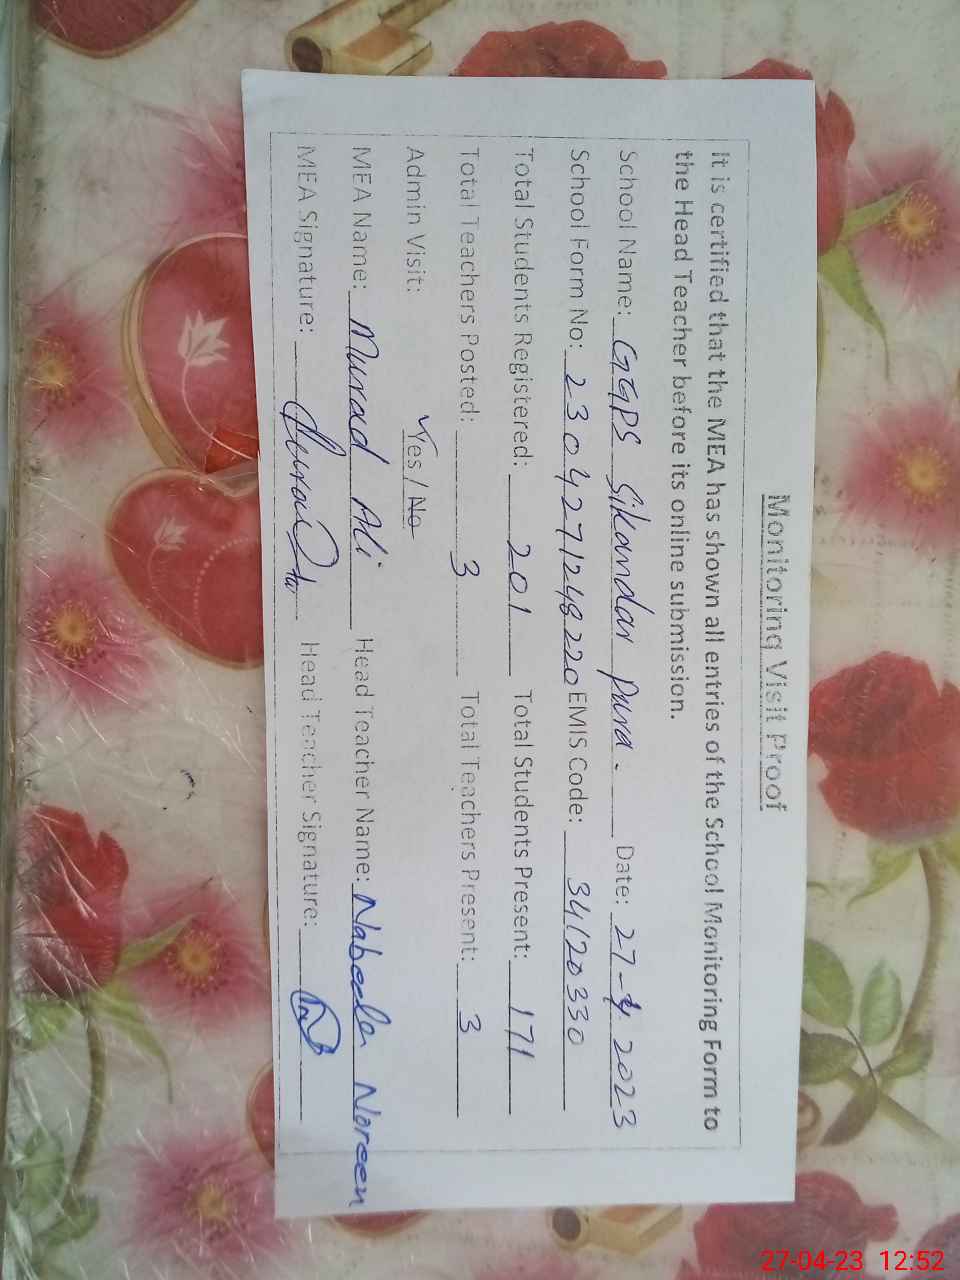 Monitoring Visit Proof
It is certified that the MEA has shown all entries of the School Monitoring Form to
the Head Teacher before its online submission.
School Name: GGPS Sikandar Pura. Date: 27-4-2023
School Form No: 2304271248220 EMIS Code: 34120330
Total Students Registered: 201 Total Students Present: 171
Total Teachers Posted: 3 Total Teachers Present: 3
Admin Visit: Yes / No
MEA Name: Murad Ali Head Teacher Name: Nabeela Noreen
MEA Signature: Head Teacher Signature:
27-04-23 12:52